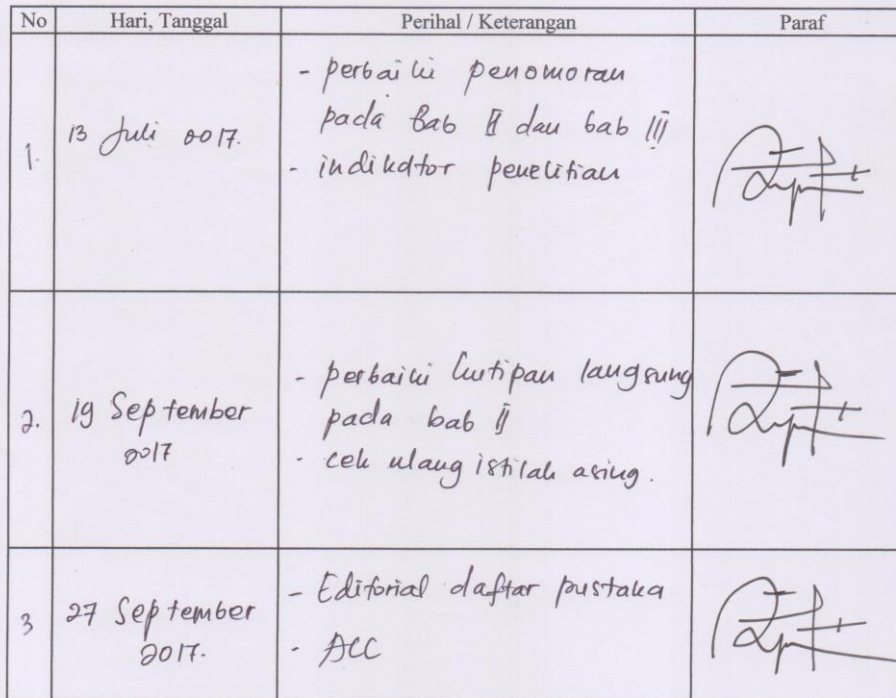 No Hari, Tanggal Perihal / Keterangan Paraf
1. 13 Juli 2017.
- perbaiki penomoran
pada Bab II dan bab III
- indikator penelitian
2. 19 September
2017
- perbaiki kutipan langsung
pada bab II
- cek ulang istilah asing.
3 27 September
2017.
- Editorial daftar pustaka
- ACC